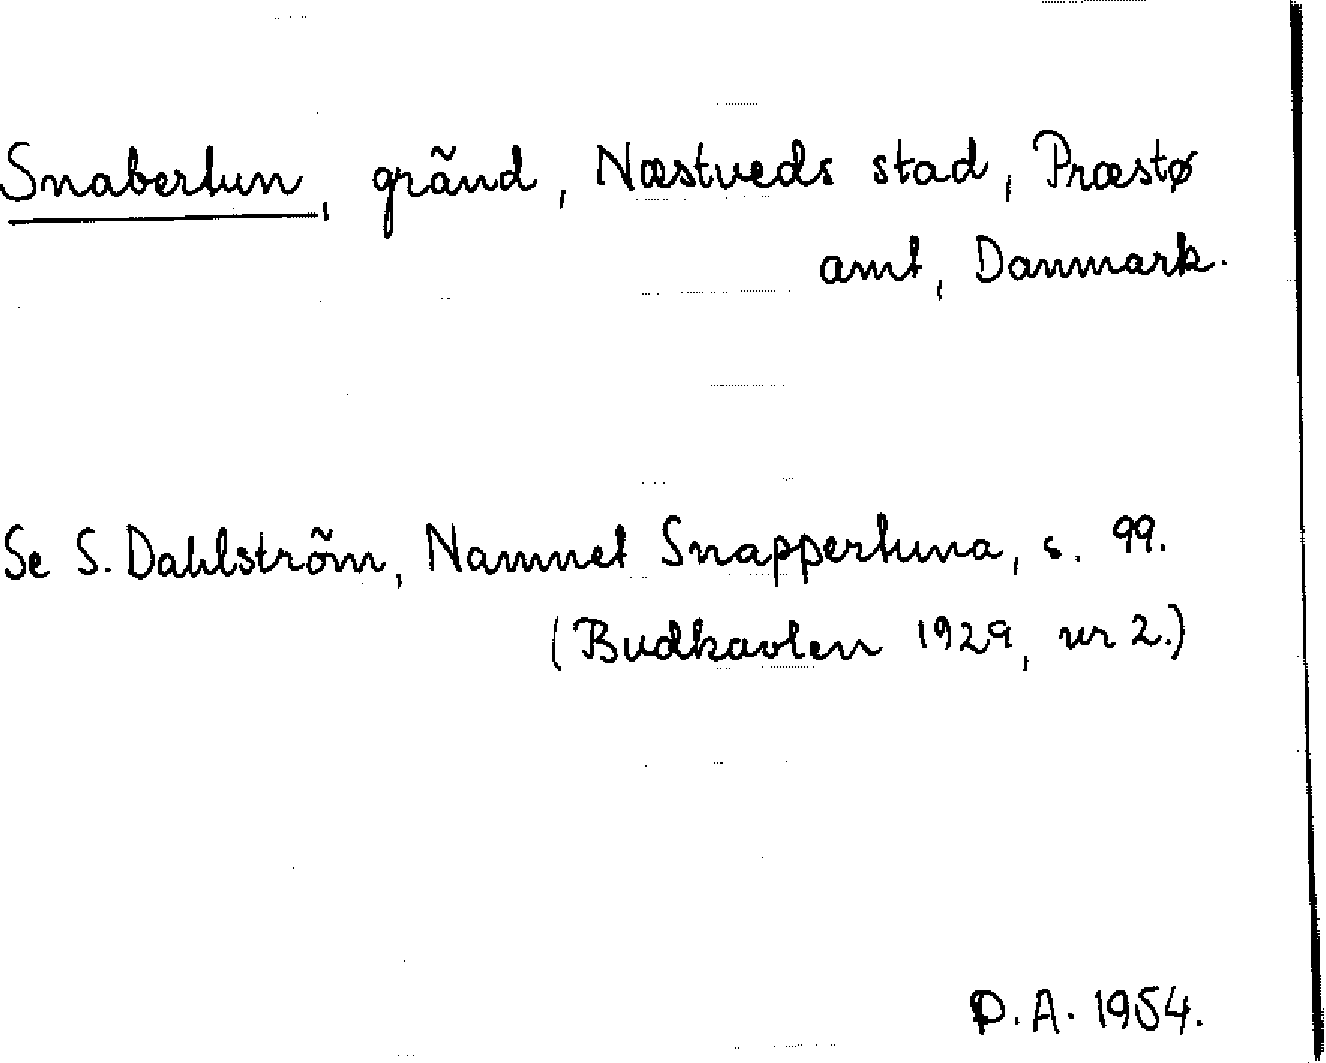 Snabertun, gränd, Næstveds stad, Præstø
amt, Danmark.
Se S. Dahlström, Namnet Snappertuna, s. 99.
(Budkavlen 1929, nr 2.)
D.A. 1954.